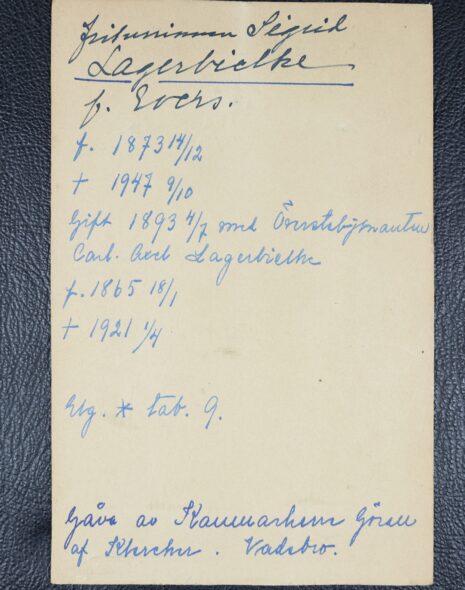 Friherrinnan Sigrid
Lagerbielke
f. Evers.
f. 1873 14/12
† 1947 9/10
Gift 1893 4/7 med Överstelöjtnanten
Carl Axel Lagerbielke
f. 1865 18/1
† 1921 1/4
Elg. * tab. 9.
Gåva av Kammarherre Göran
af Klercker. Vadsbro.